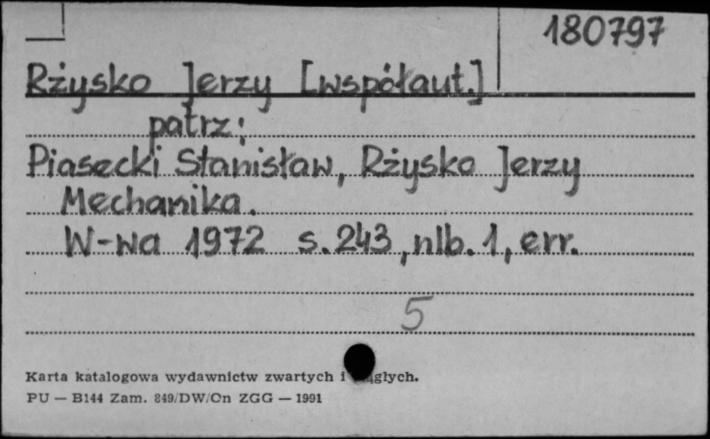 180797
Rżysko Jerzy [współaut.]
patrz:
Piasecki Stanisław, Rżysko Jerzy
Mechanika.
W-wa 1972 s. 243, nlb. 1, err.
5
Karta katalogowa wydawnictw zwartych i ciągłych.
PU — B144 Zam. 849/DW/Cn ZGG — 1991